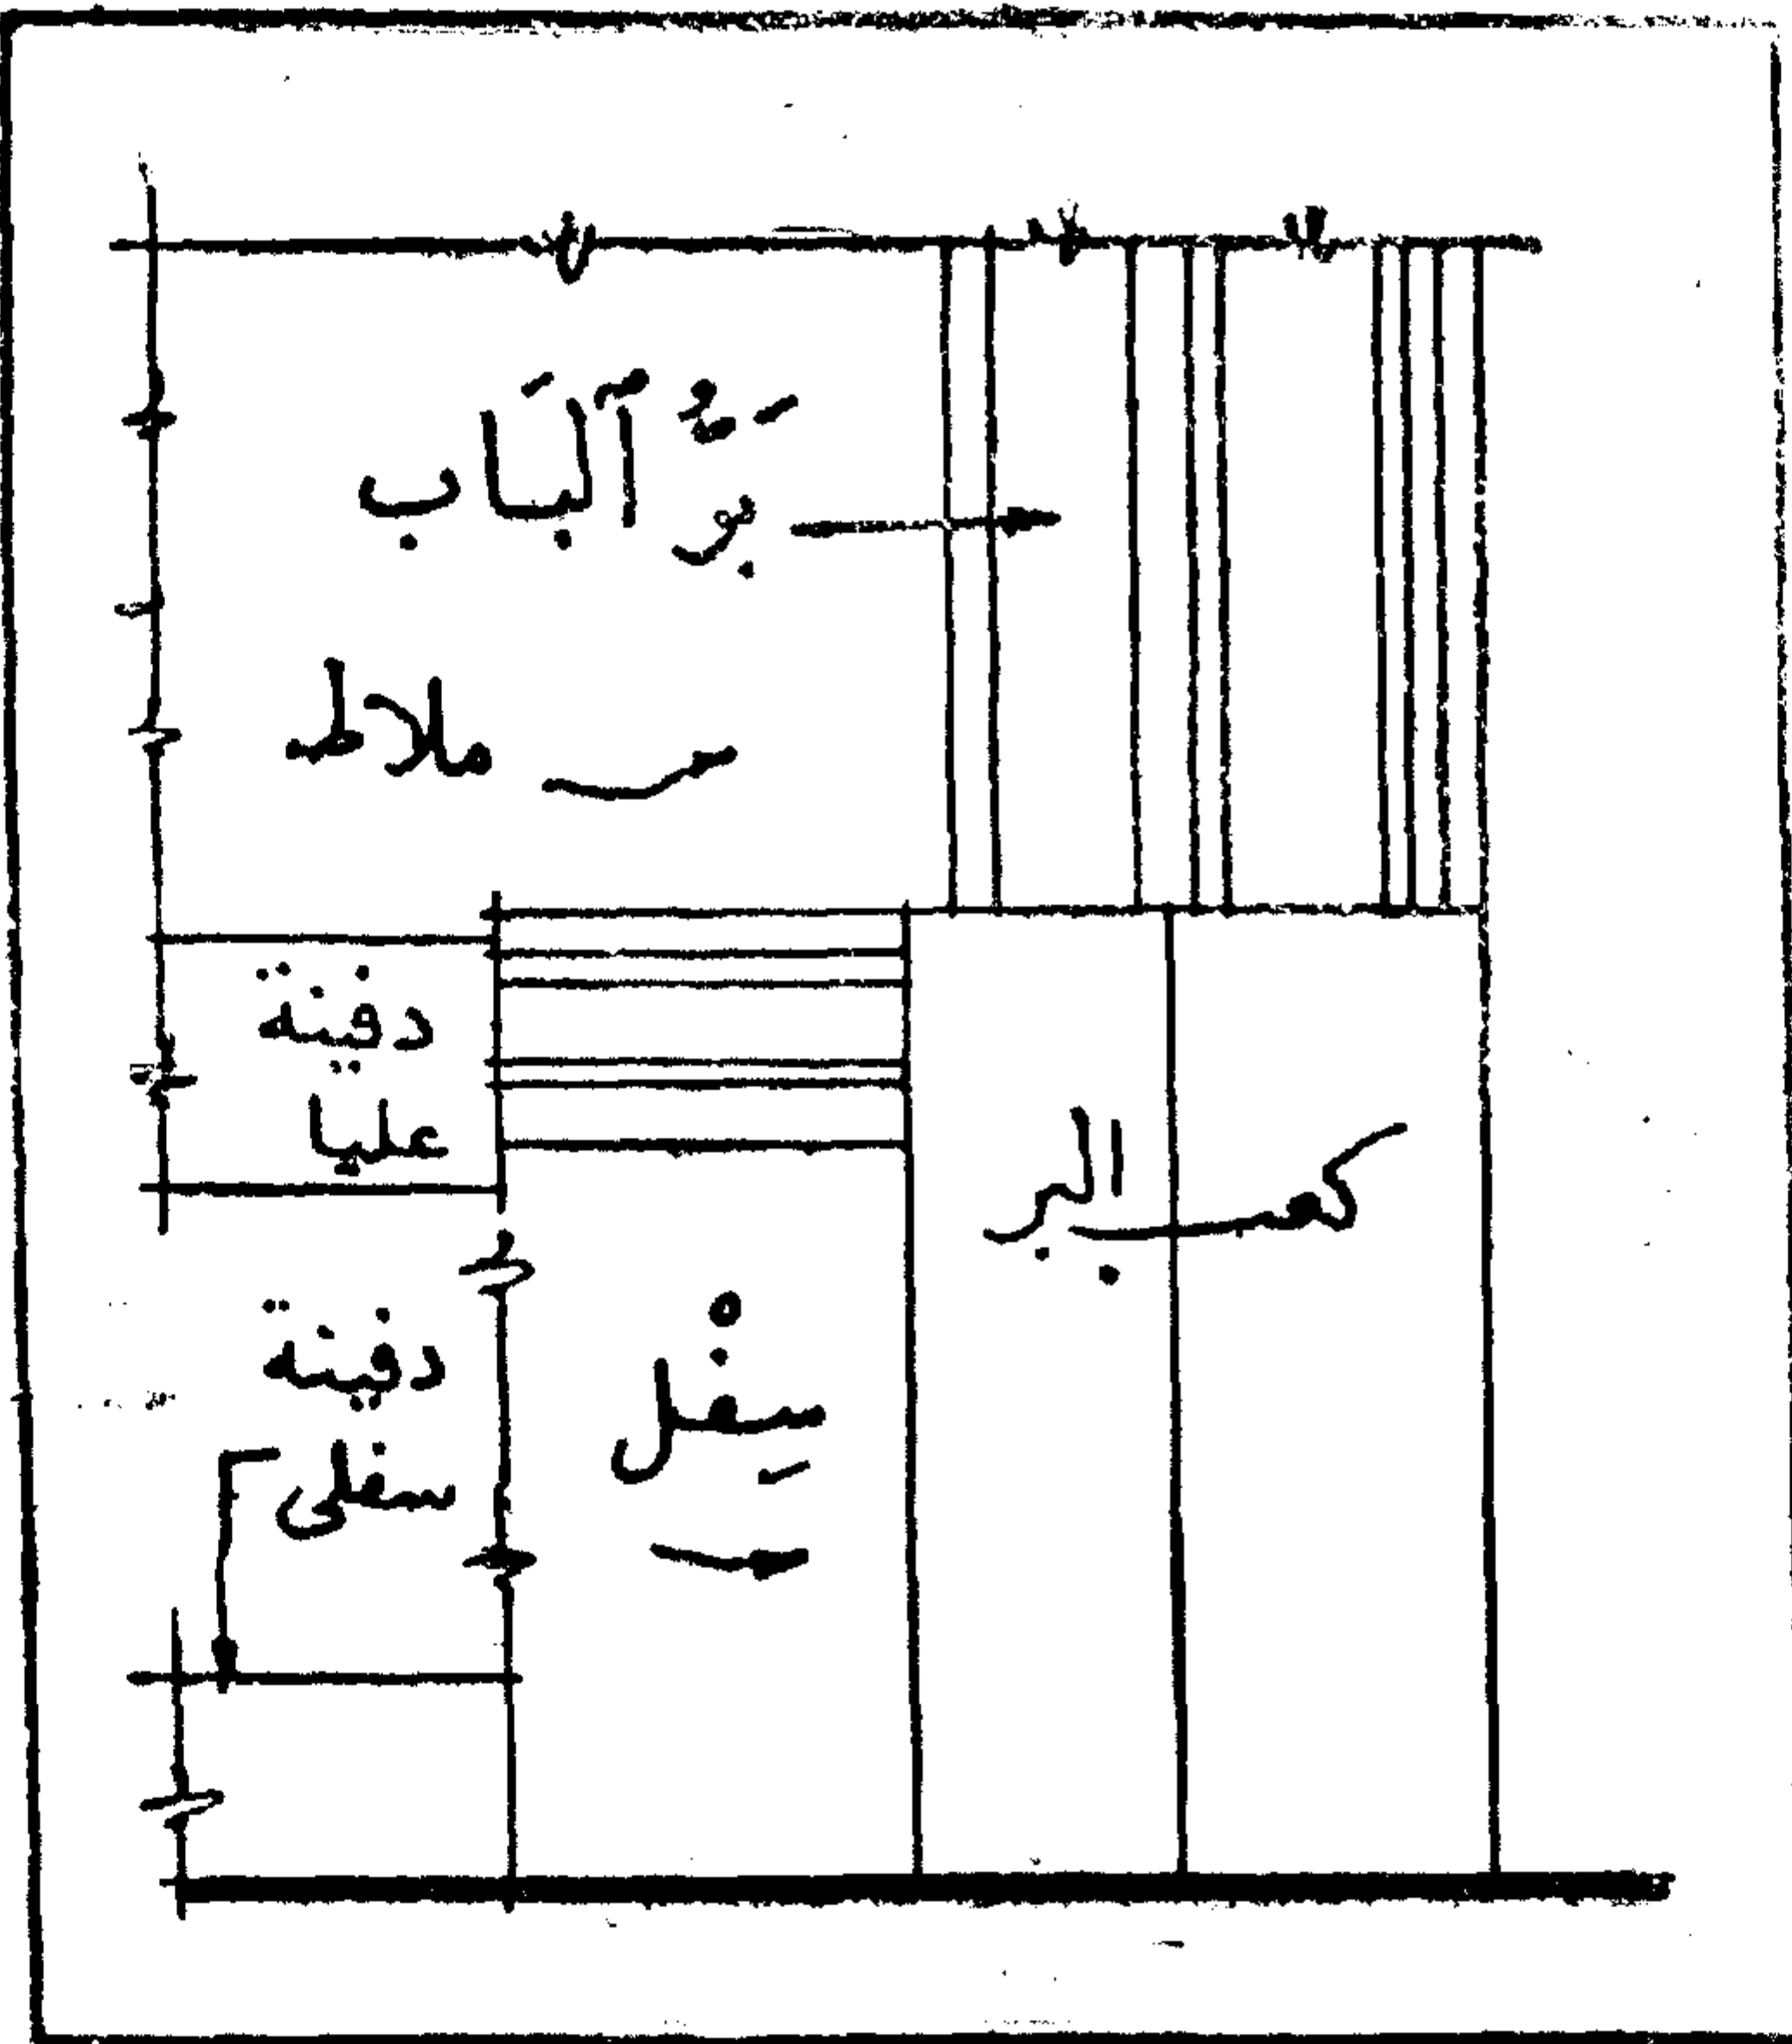 بَرُّ ٱلبَاب
ملاط
دفينة
عليا
كعب البر
دفينة
سفلى
سِفْل